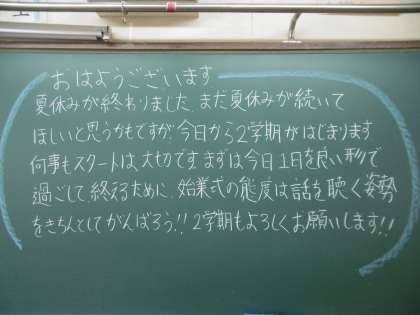 おはようございます
夏休みが終わりました。まだ夏休みが続いて
ほしいと思うかもですが、今日から2学期がはじまります
何事もスタートは大切です。まずは今日1日を良い形で
過ごして、終えるために、始業式の態度は話を聴く姿勢
をきちんとしてがんばろう!!2学期もよろしくお願いします!!